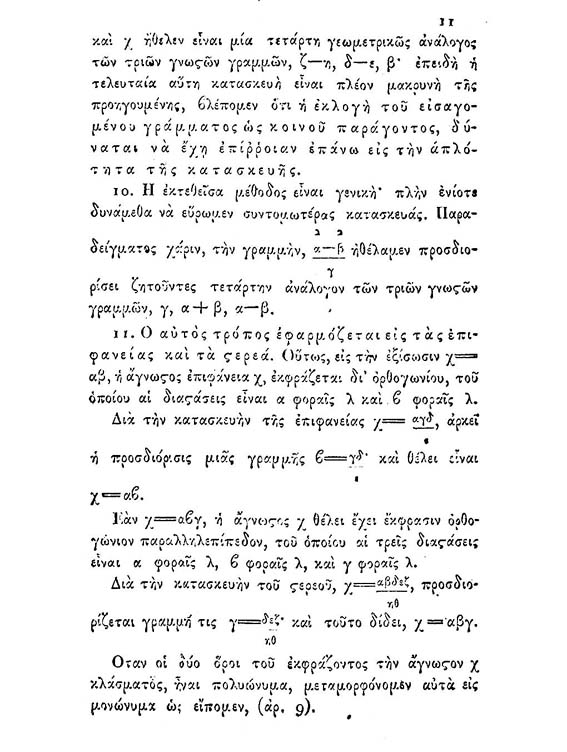 11
καὶ χ ἤθελεν εἶναι μία τετάρτη γεωμετρικῶς ἀνάλογος
τῶν τριῶν γνωϛῶν γραμμῶν, ζ—η, δ—ε, β· ἐπειδὴ ἡ
τελευταία αὕτη κατασκευὴ εἶναι πλέον μακρυνὴ τῆς
προηγουμένης, ϐλέπομεν ὅτι ἡ ἐκλογὴ τοῦ εἰσαγο-
μένου γράμματος ὡς κοινοῦ παράγοντος, δύ-
ναται νὰ ἔχῃ ἐπίῤῥοιαν ἐπάνω εἰς τὴν ἁπλό-
τητα τῆς κατασκευῆς.
10. Ἡ ἐκτεθεῖσα μέθοδος εἶναι γενική· πλὴν ἐνίοτε
δυνάμεθα νὰ εὕρωμεν συντομωτέρας κατασκευάς. Παρα-
2 2
δείγματος χάριν, τὴν γραμμὴν, α—β ἠθέλαμεν προσδιο-
γ
ρίσει ζητοῦντες τετάρτην ἀνάλογον τῶν τριῶν γνωϛῶν
γραμμῶν, γ, α+β, α—β.
11. Ὁ αὐτὸς τρόπος ἐφαρμόζεται εἰς τὰς ἐπι-
φανείας καὶ τὰ ϛερεά. Οὕτως, εἰς τὴν ἐξίσωσιν χ=
αβ, ἡ ἄγνωϛος ἐπιφάνεια χ, ἐκφράζεται δι' ὀρθογωνίου, τοῦ
ὁποίου αἱ διαϛάσεις εἶναι α φοραῖς λ καὶ ϐ φοραῖς λ.
Διὰ τὴν κατασκευὴν τῆς ἐπιφανείας χ= αγδ, ἀρκεῖ
ε
ἡ προσδιόρισις μιᾶς γραμμῆς ϐ=γδ· καὶ θέλει εἶναι
ε
χ=αϐ.
Ἐὰν χ=αϐγ, ἡ ἄγνωϛος χ θέλει ἔχει ἔκφρασιν ὀρθο-
γώνιον παραλληλεπίπεδον, τοῦ ὁποίου αἱ τρεῖς διαϛάσεις
εἶναι α φοραῖς λ, ϐ φοραῖς λ, καὶ γ φοραῖς λ.
Διὰ τὴν κατασκευὴν τοῦ ϛερεοῦ, χ=αβδεζ, προσδιο-
ηθ
ρίζεται γραμμή τις γ=δεζ· καὶ τοῦτο δίδει, χ=αβγ.
ηθ
Ὅταν οἱ δύο ὅροι τοῦ ἐκφράζοντος τὴν ἄγνωϛον χ
κλάσματος, ἦναι πολυώνυμα, μεταμορφόνομεν αὐτὰ εἰς
μονώνυμα ὡς εἴπομεν, (ἀρ. 9).